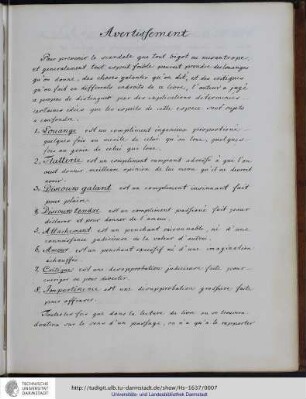 Avertissement
Pour prévenir le scandale que tout bigot ou misantrope,
et généralement tout esprit faible pourroit prendre des louanges
qu'on donne, des choses galantes qu'on dit, et des critiques
qu'on fait en differents endroits de ce livre, l'auteur a jugé
a propos de distinguer par des explications déterminées
certaines idées que les esprits de cette espece sont sujets
a confondre.
1. Louange est un compliment ingenieux proportioné
quelques fois au mérite de celui qu'on loue, quelques
fois au genie de celui qui loue.
2. Flatterie est un compliment rampant
opinion de
3. Discours galand est un compliment innocent fait
pour plaire.
4. Discours tendre est un compliment passioné fait pour
et pour donner de l'amour.
5. Attachement est un penchant raisonable, né d'une
connoissance judicieuse de la valeur d'autrui.
6. Amour est un penchant né d'une imagination
échauffée
7. Critique est une desapprobation judicieuse faite pour
corriger ou pour
8. Impertinence est une desapprobation grossière faite
pour offenser.
Toutes les fois que dans la lecture du livre on se trouvera
sur le sens d'un passage, on n'a qu'à le rapporter
TECHNISCHE
UNIVERSITÄT
DARMSTADT
http://tudigit.ulb.tu-darmstadt.de/show/Hs-1637/0007
Universitäts- und Landesbibliothek Darmstadt